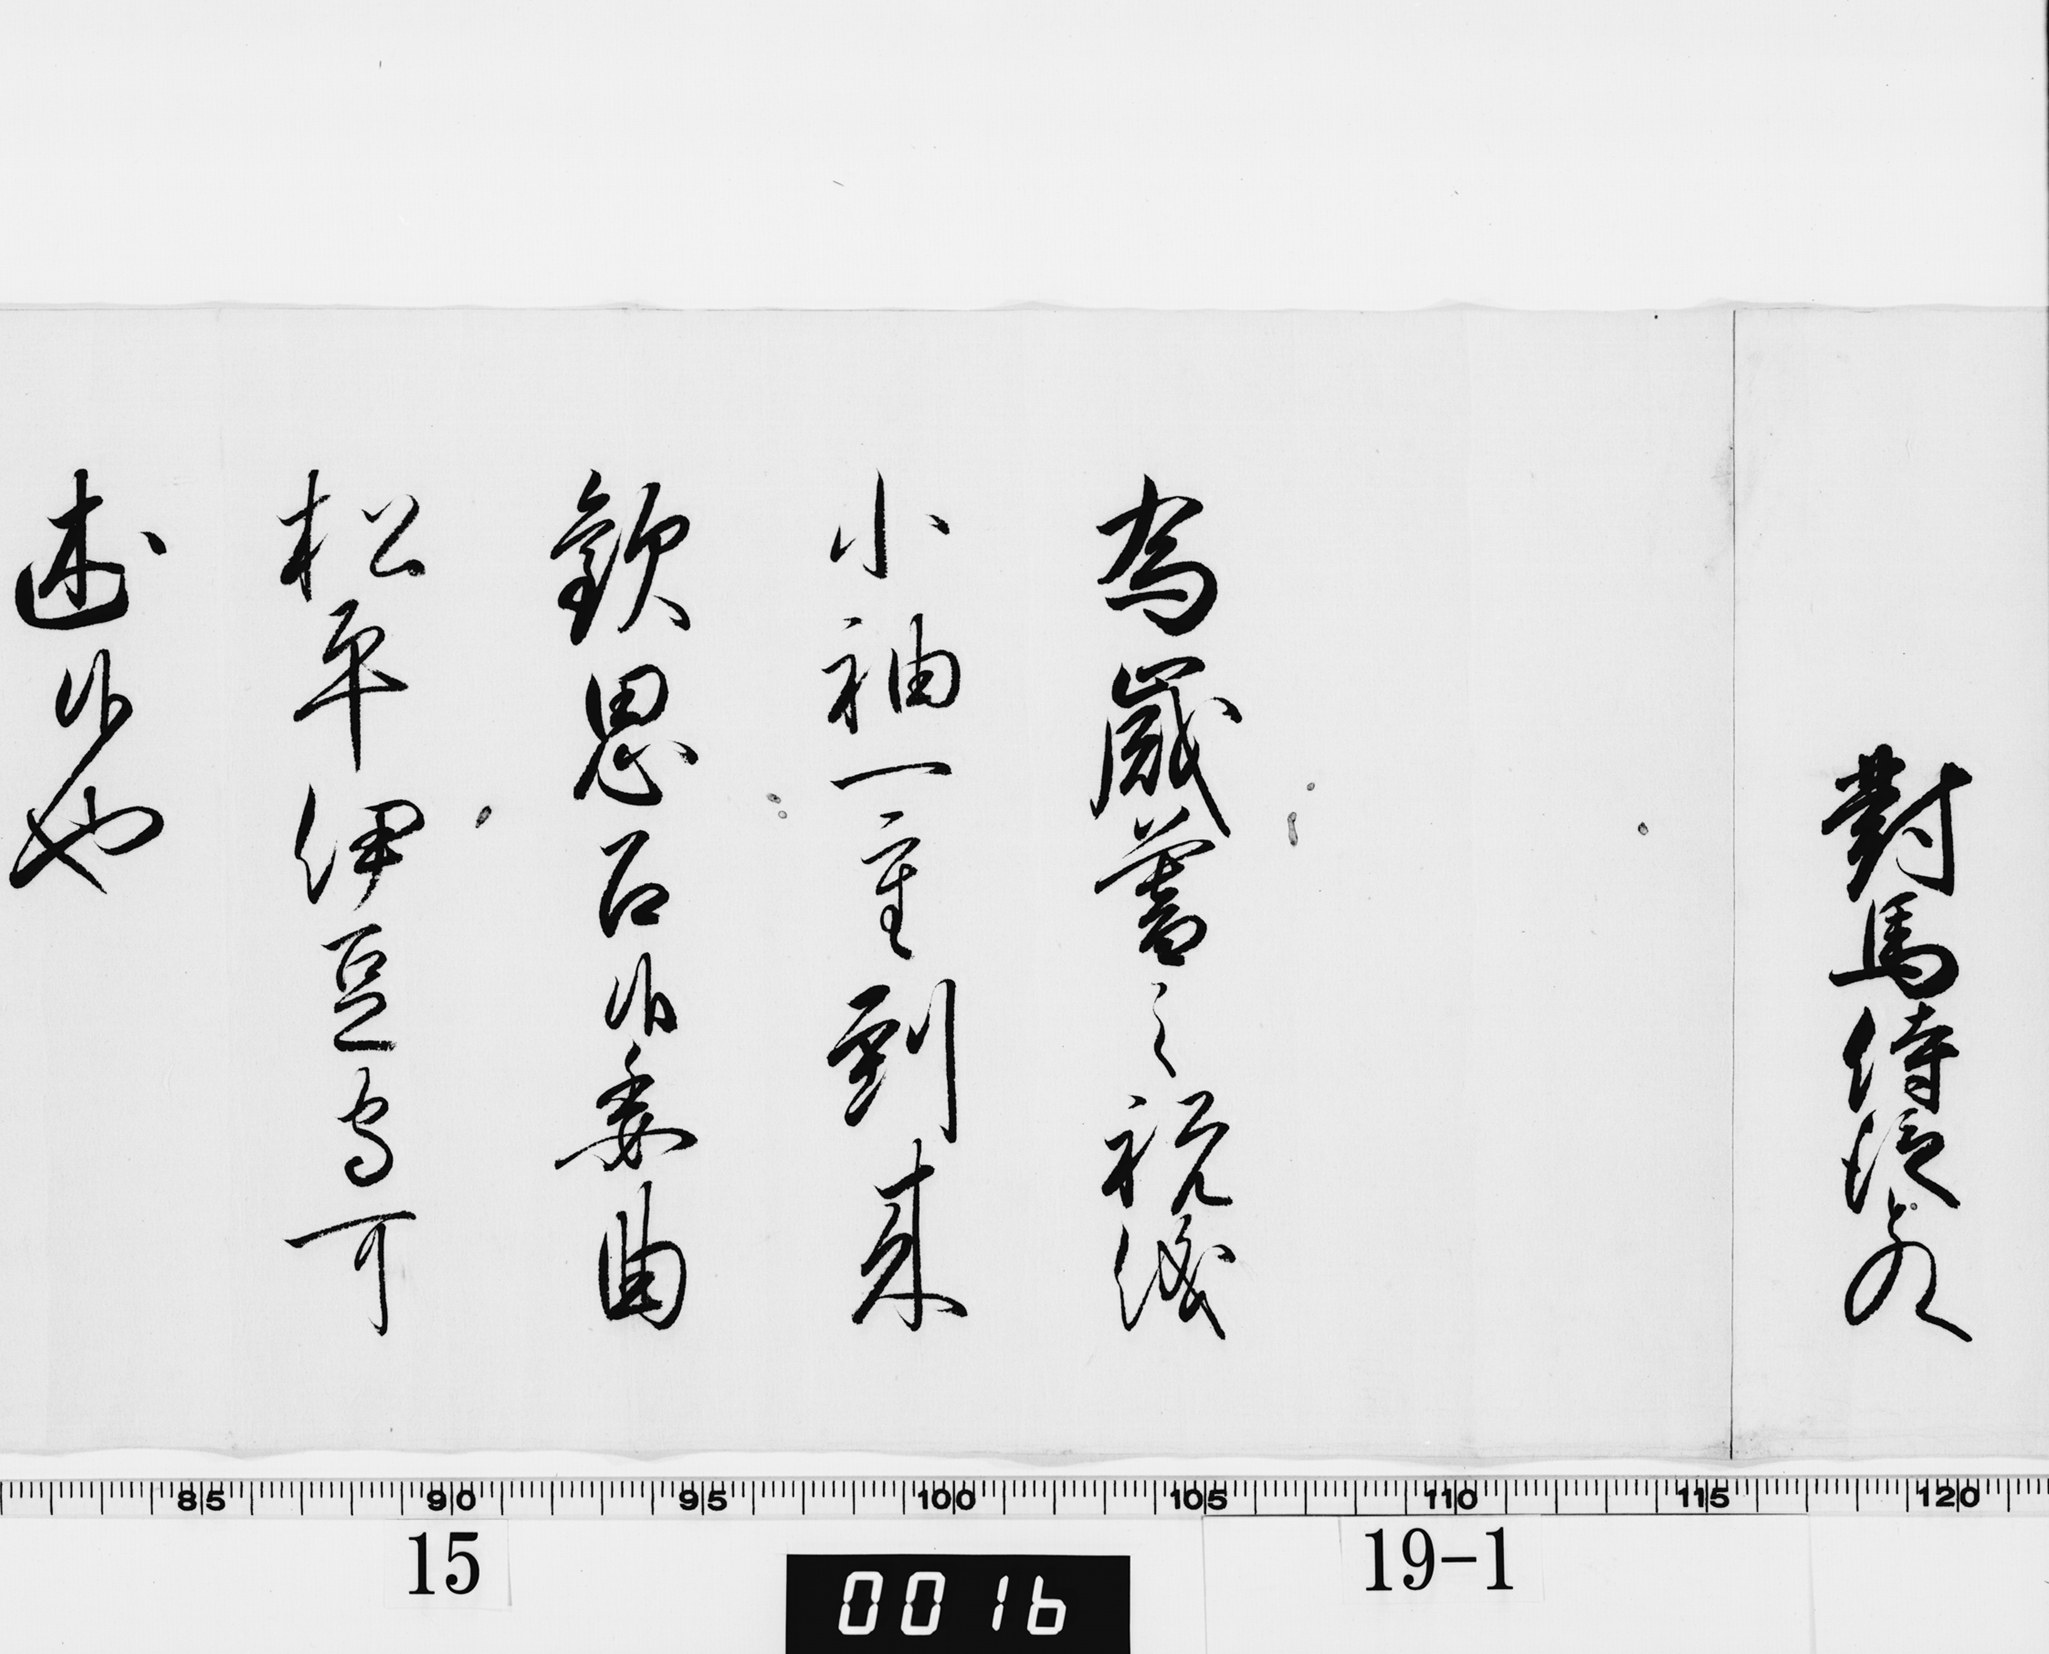 對馬侍従殿
為歳暮之祝儀
小袖一重到来
歓思召候委曲
松平伊豆守可
述候也
85 90 95 100 105 110 115 120
15
0016
19-1